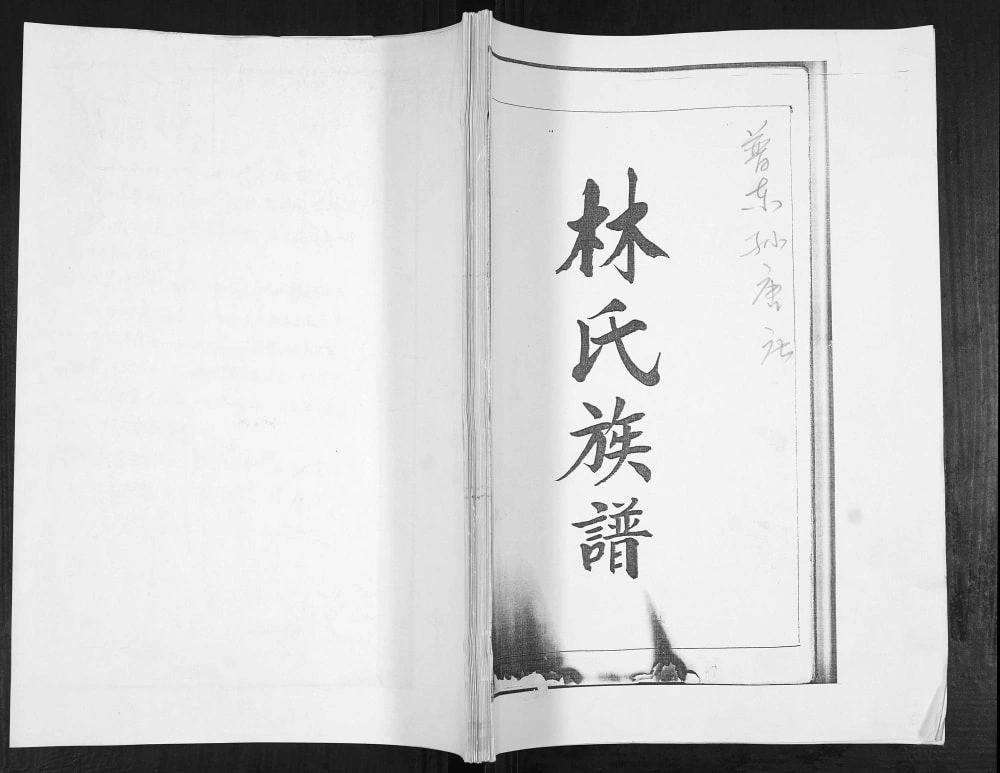 普东孙唐庄
林氏族譜